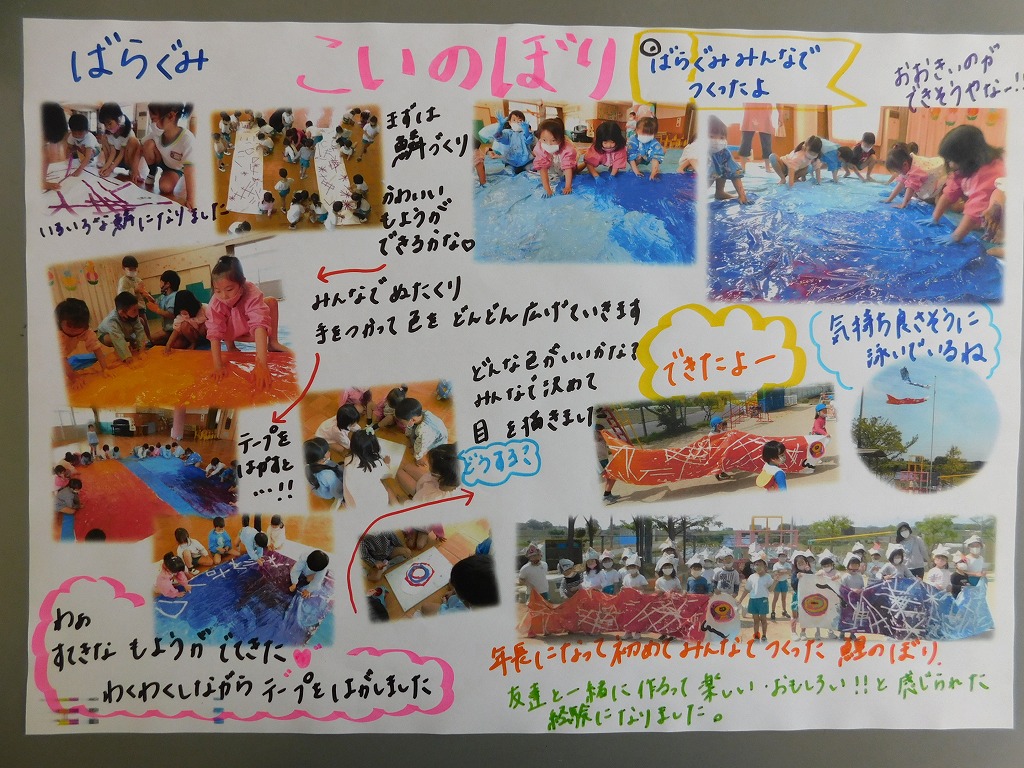 ばらぐみ
こいのぼり
ばらぐみみんなで
つくったよ
おおきいのが
できそうやなー!!
まずは
鱗づくり
いろいろな鱗になりました
かわいい
もようが
できるかな♡
みんなで ぬたくり
手をつかって 色を どんどん広げていきます
テープを
はがすと
…!!
どんな色がいいかな?
みんなで決めて
目を描きました
どうする?
できたよー
気持ち良さそうに
泳いでいるね
わぁ
すてきな もようが でてきた
わくわくしながら テープをはがしました
年長になって初めてみんなでつくった 鯉のぼり.
友達と一緒に作るって楽しい・おもしろい!!と感じられた
経験になりました。